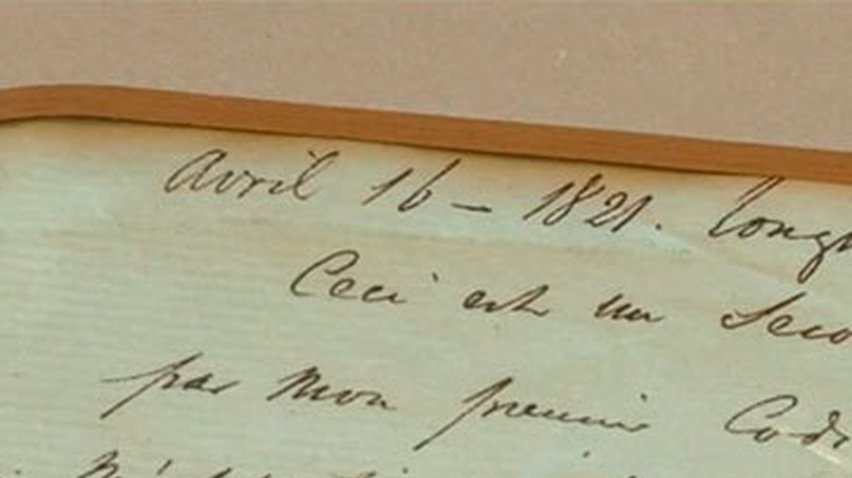 Avril 16 - 1821. Longw
Ceci est un Seco
par mon premier Codi